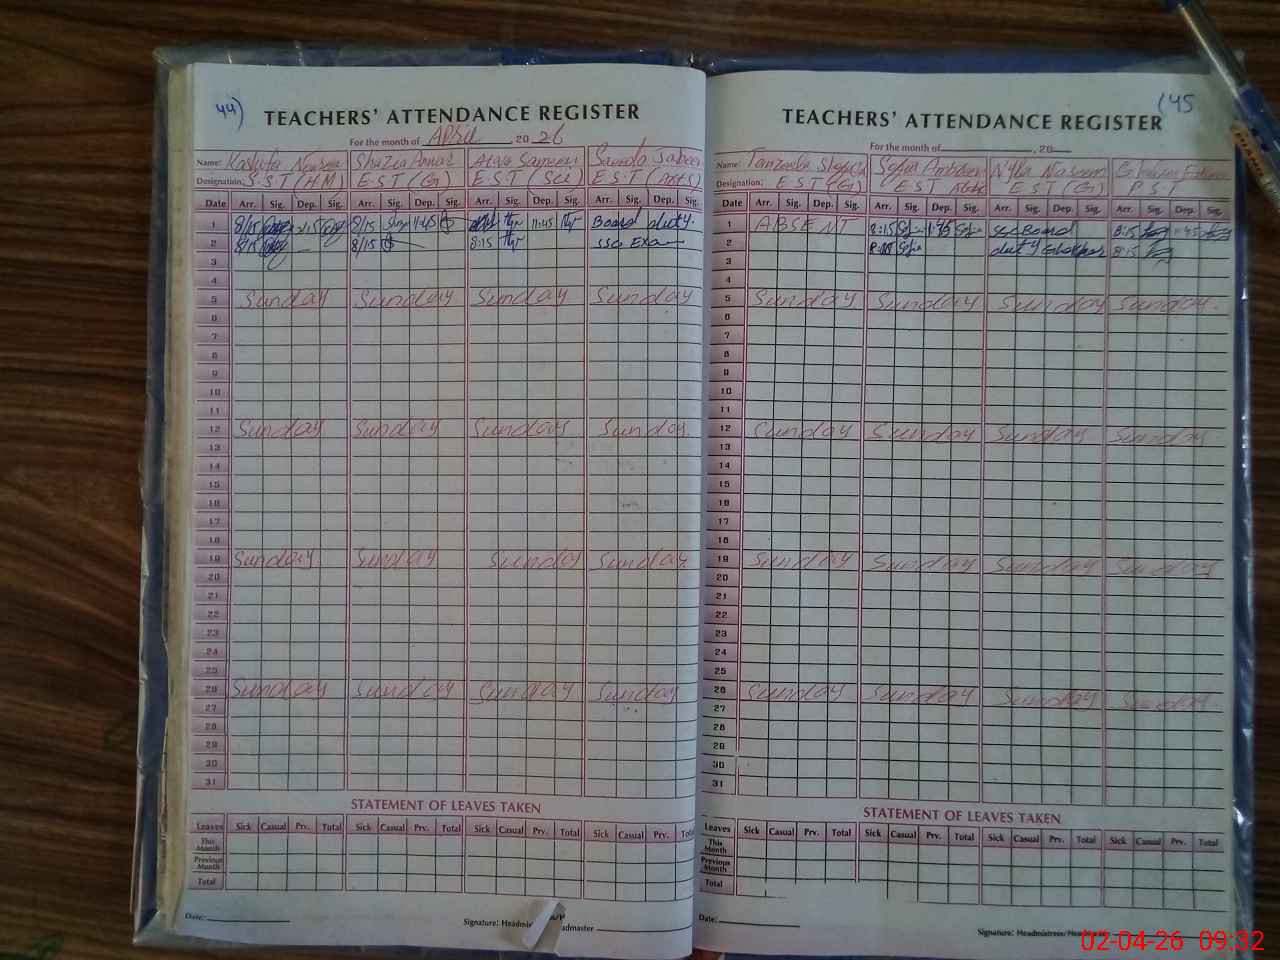 44)
TEACHERS' ATTENDANCE REGISTER
For the month of April 20 26
Name: Shazia Sameen
Designation: S.S.T (HM) E.S.T (Gn) E.S.T (Sci) E.S.T (Arts)
Date Arr. Sig. Dep. Sig. Arr. Sig. Dep. Sig. Arr. Sig. Dep. Sig. Arr. Sig. Dep. Sig.
1 8/15 8/15 11:45 11:45 Board duty
2 8/15 8/15 8:15 SSC Exam
3
4
5 Sunday Sunday Sunday Sunday
6
7
8
9
10
11
12 Sunday Sunday Sunday Sunday
13
14
15
16
17
18
19 Sunday Sunday Sunday Sunday
20
21
22
23
24
25
26 Sunday Sunday Sunday Sunday
27
28
29
30
31
STATEMENT OF LEAVES TAKEN
Leaves Sick Casual Prv. Total Sick Casual Prv. Total Sick Casual Prv. Total Sick Casual Prv. Total
This Month
Previous Month
Total
Date:
Signature:
(45
TEACHERS' ATTENDANCE REGISTER
For the month of , 20
Name: Nyla Naseem
Designation: E.S.T (Gn) E.S.T E.S.T (Gn) P.S.T
Date Arr. Sig. Dep. Sig. Arr. Sig. Dep. Sig. Arr. Sig. Dep. Sig. Arr. Sig. Dep. Sig.
1 ABSENT 8:15 Board 8:15
2 duty 8:15
3
4
5 Sunday Sunday Sunday Sunday
6
7
8
9
10
11
12 Sunday Sunday Sunday Sunday
13
14
15
16
17
18
19 Sunday Sunday Sunday Sunday
20
21
22
23
24
25
26 Sunday Sunday Sunday Sunday
27
28
29
30
31
STATEMENT OF LEAVES TAKEN
Leaves Sick Casual Prv. Total Sick Casual Prv. Total Sick Casual Prv. Total Sick Casual Prv. Total
This Month
Previous Month
Total
Date:
Signature:
02-04-26 09:32